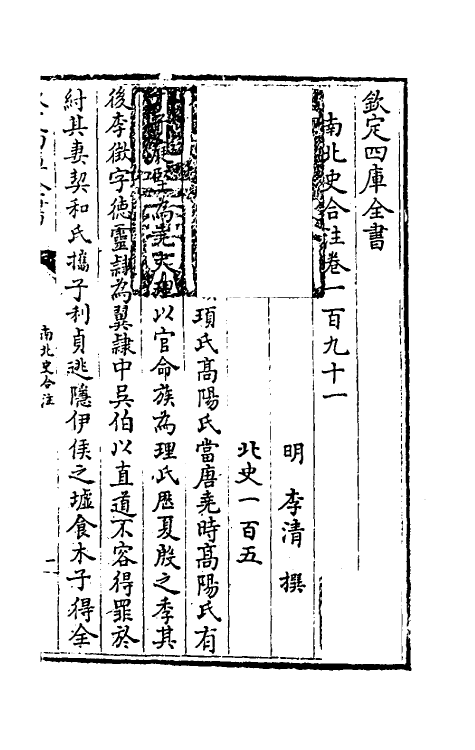 欽定四庫全書
南北史合注卷一百九十一
明 李清 撰
北史一百五
頊氏髙陽氏當唐堯時髙陽氏有
堅為堯大理以官命族為理氏歴夏殷之季其
後李徵字徳靈隷為翼隷中吳伯以直道不容得罪於
紂其妻契和氏擕子利貞逃隱伊侯之墟食木子得全
南北史合注